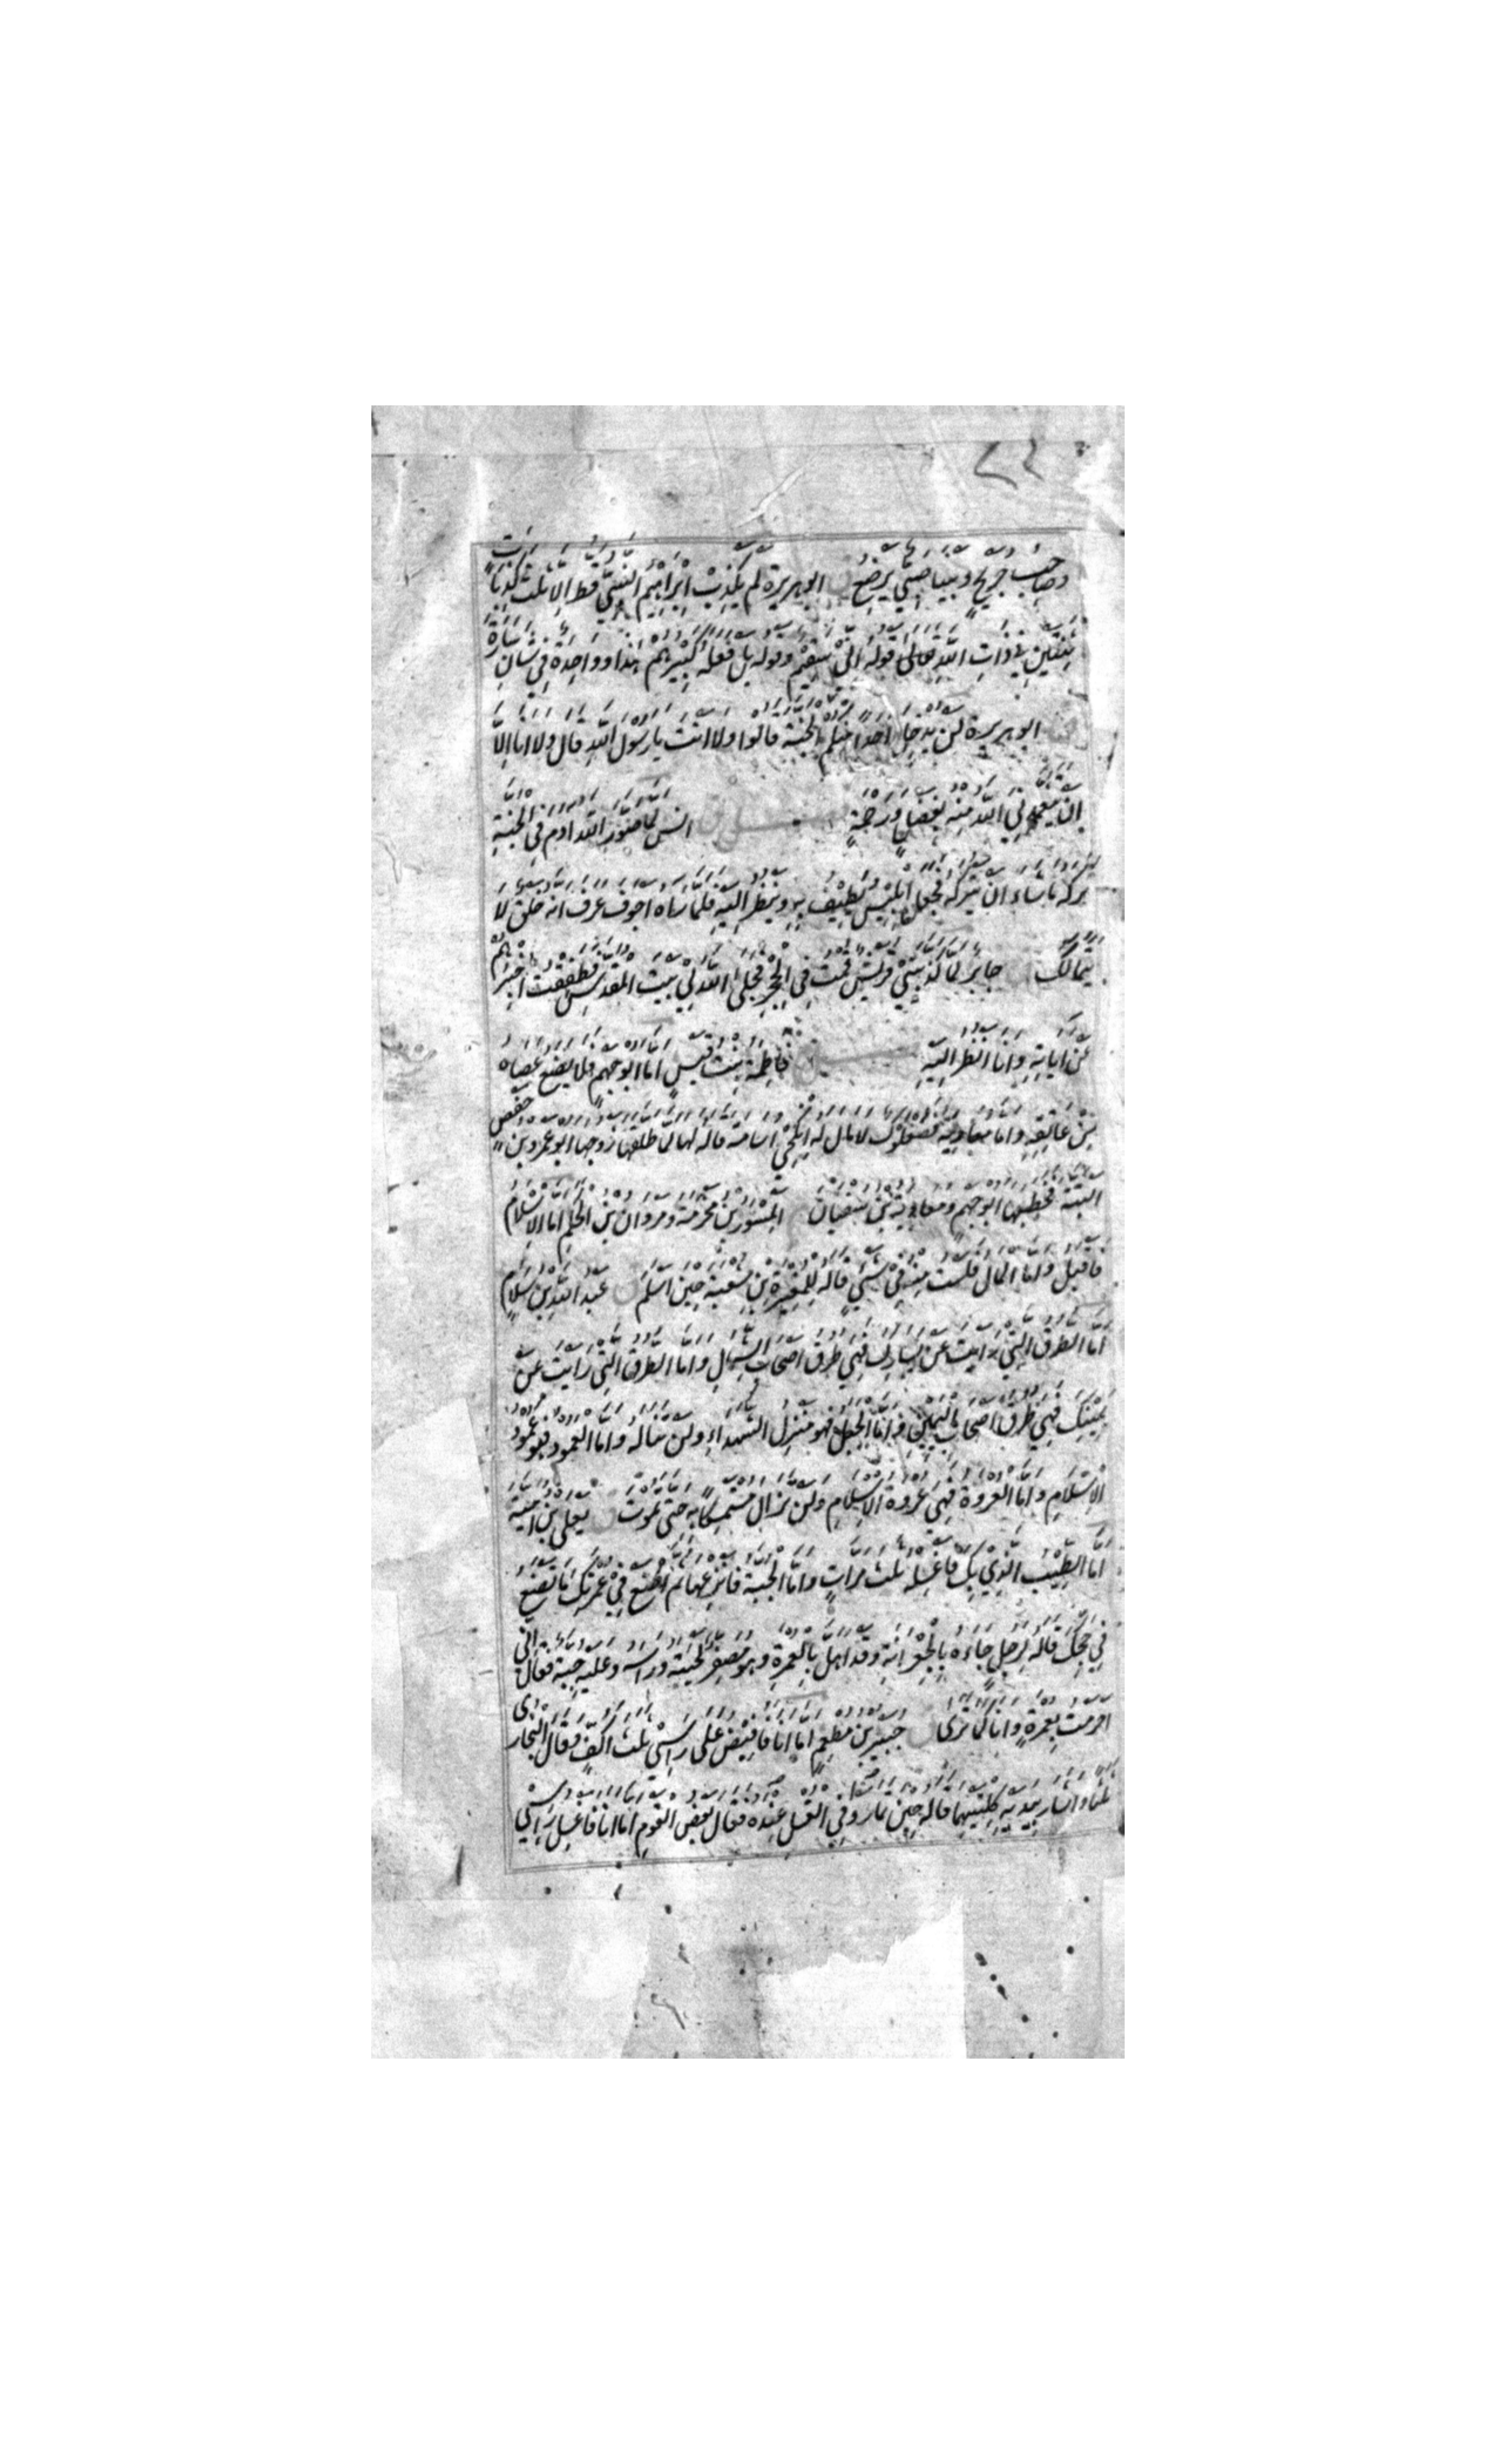 ٤٤
وصاحب جريج وبينا صبي يرضع ق ابو هريرة لم يكذب ابراهيم النبي قط الا ثلث كذبات
ثنتين في ذات الله تعالى قوله اني سقيم وقوله بل فعله كبيرهم هذا وواحدة في شان سارة
ق ابو هريرة لن يدخل احدا منكم الجنة قالوا ولا انت يا رسول الله قال ولا انا الا
ان يتغمدني الله منه بفضل ورحمة ق انس لما صور الله ادم في الجنة
تركه ما شاء ان يتركه فجعل ابليس يطيف به وينظر اليه فلما راه اجوف عرف انه خلق لا
يتمالك ق جابر لما كذبتني قريش قمت في الحجر فجلى الله لي بيت المقدس فطفقت اخبرهم
عن اياته وانا انظر اليه ق فاطمة بنت قيس اما ابو جهم فلا يضع عصاه
عن عاتقه واما معاوية فصعلوك لا مال له انكحي اسامة قاله لها لما طلقها زوجها ابو عمرو بن حفص
البتة فخطبها ابو جهم ومعاوية بن سفيان المسور بن مخرمة ومروان بن الحكم اما الاسلام
فاقبل واما المال فلست منه في شيء قاله للمغيرة بن شعبة حين اسلم ق عبد الله بن سلام
اما الطرق التي رايت عن يسارك فهي طرق اصحاب الشمال واما الطرق التي رايت عن
يمينك فهي طرق اصحاب اليمين واما الجبل فهو منزل الشهداء ولن تناله واما العمود فهو عمود
الاسلام واما العروة فهي عروة الاسلام ولن تزال متمسكا به حتى تموت ق يعلى بن امية
اما الطيب الذي بك فاغسله ثلث مرات واما الجبة فانزعها ثم اصنع في عمرتك ما تصنع
في حجك قاله لرجل جاءه بالجعرانة وقد اهل بالعمرة وهو مصفر لحيته وراسه وعليه جبة فقال اني
احرمت بعمرة وانا كما ترى ق جبير بن مطعم اما انا فافيض على راسي ثلث اكف وقال البخاري
ثلثا واشار بيديه كلتيهما قاله حين تماروا في الغسل عنده فقال بعض القوم اما انا فاغسل راسي